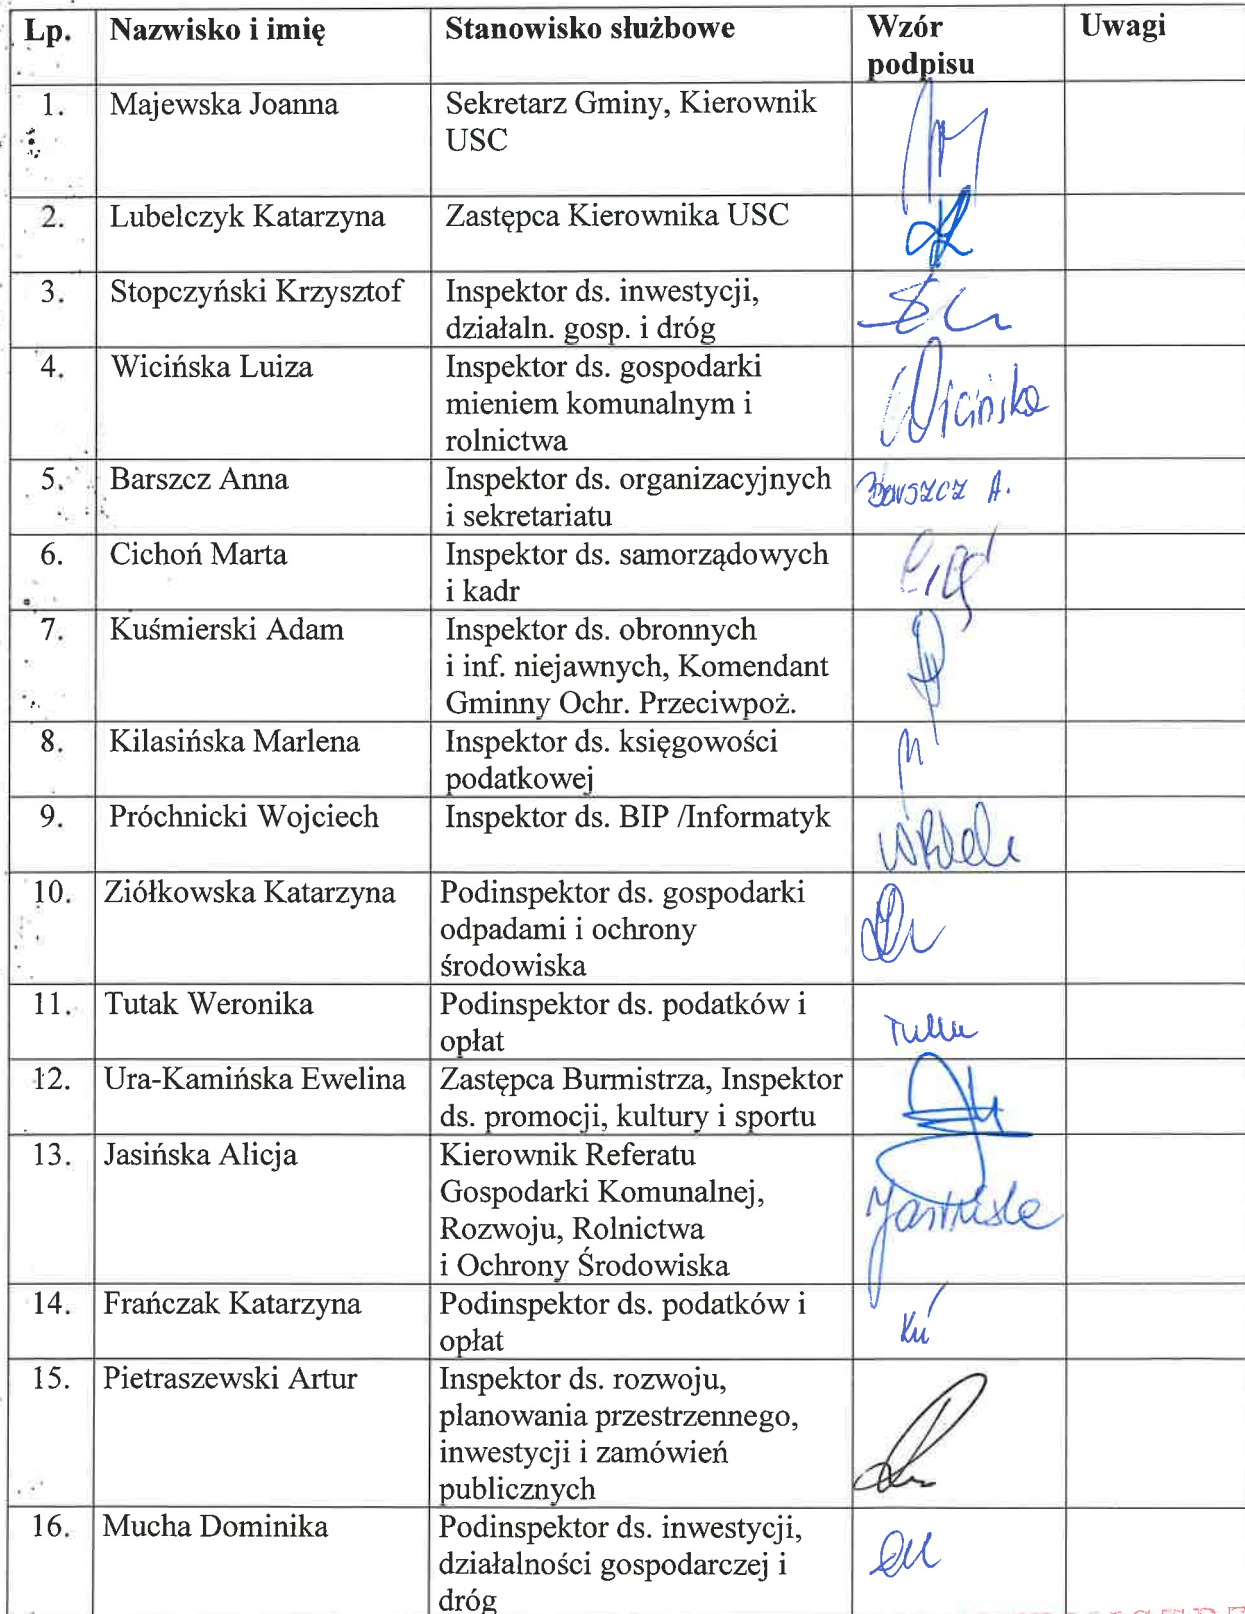 Lp. Nazwisko i imię Stanowisko służbowe Wzór Uwagi
podpisu
1. Majewska Joanna Sekretarz Gminy, Kierownik
USC
2. Lubelczyk Katarzyna Zastępca Kierownika USC
3. Stopczyński Krzysztof Inspektor ds. inwestycji,
działaln. gosp. i dróg
4. Wicińska Luiza Inspektor ds. gospodarki
mieniem komunalnym i Wicińska
rolnictwa
5. Barszcz Anna Inspektor ds. organizacyjnych Barszcz A.
i sekretariatu
6. Cichoń Marta Inspektor ds. samorządowych
i kadr
7. Kuśmierski Adam Inspektor ds. obronnych
i inf. niejawnych, Komendant
Gminny Ochr. Przeciwpoż.
8. Kilasińska Marlena Inspektor ds. księgowości
podatkowej
9. Próchnicki Wojciech Inspektor ds. BIP /Informatyk
10. Ziółkowska Katarzyna Podinspektor ds. gospodarki
odpadami i ochrony
środowiska
11. Tutak Weronika Podinspektor ds. podatków i
opłat
12. Ura-Kamińska Ewelina Zastępca Burmistrza, Inspektor
ds. promocji, kultury i sportu
13. Jasińska Alicja Kierownik Referatu
Gospodarki Komunalnej,
Rozwoju, Rolnictwa
i Ochrony Środowiska
14. Frańczak Katarzyna Podinspektor ds. podatków i
opłat
15. Pietraszewski Artur Inspektor ds. rozwoju,
planowania przestrzennego,
inwestycji i zamówień
publicznych
16. Mucha Dominika Podinspektor ds. inwestycji,
działalności gospodarczej i
dróg